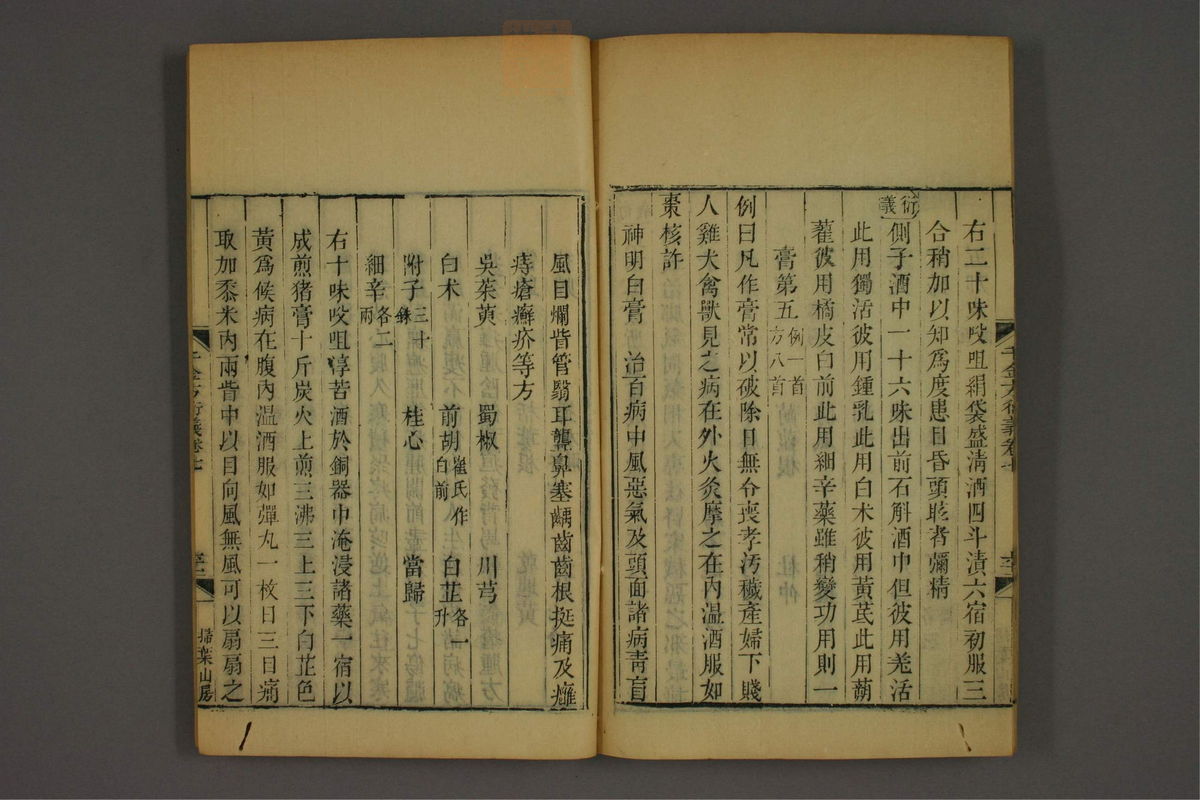 右二十味㕮咀絹袋盛清酒四斗漬六宿初服三
合稍加以知為度患目昏頭眩者彌精
衍義
側子酒中一十六味出前石斛酒中但彼用羌活
此用獨活彼用鍾乳此用白术彼用黃芪此用蒴
藋彼用橘皮白前此用細辛藥雖稍變功用則一
膏第五 例一首 方八首
例曰凡作膏常以破除日無令喪孝汚穢產婦下賤
人雞犬禽獸見之病在外火灸摩之在內溫酒服如
棗核許
神明白膏 治百病中風惡氣及頭面諸病青盲
風目爛眥管翳耳聾鼻塞齲齒齒根挺痛及癰
痔瘡癬疥等方
吳茱萸 蜀椒 川芎
白术 前胡 崔氏作白前 白芷 各一升
附子 三十銖 桂心 當歸
細辛 各二兩
右十味㕮咀淳苦酒於銅器中淹浸諸藥一宿以
成煎猪膏十斤炭火上煎三沸三上三下白芷色
黃為候病在腹內溫酒服如彈丸一枚日三目痛
取加黍米內兩眥中以目向風無風可以扇扇之
千金方衍義卷七
掃葉山房